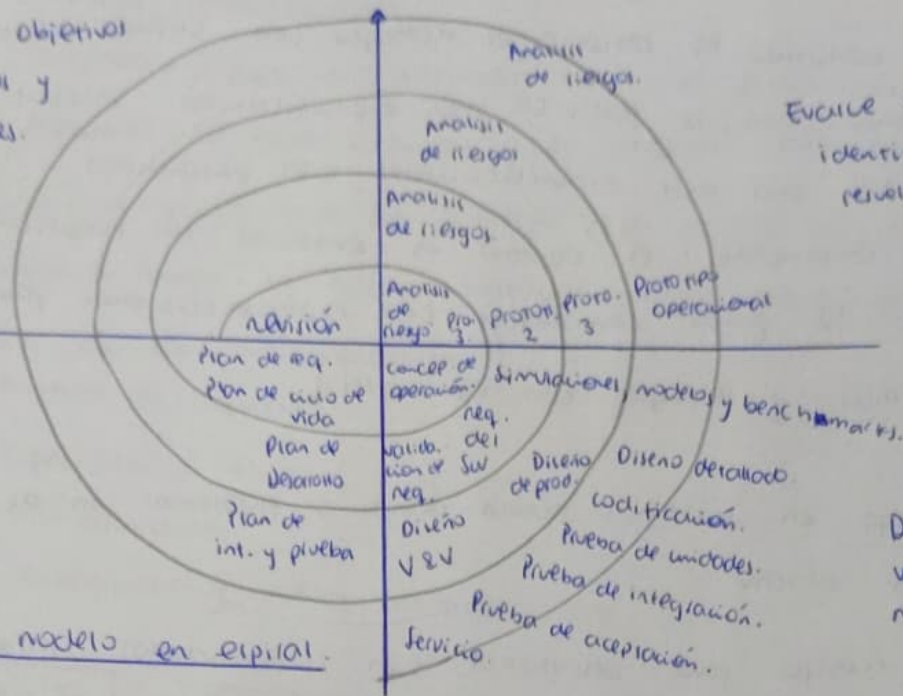 objetivos
y
Análisis
de riesgos.
Evalúe
Análisis
de riesgos
Análisis
de riesgos
Análisis
de
riesgo
Pro.
Protot.
2
proto.
3
Prototipo
operacional
revisión
Plan de req.
Plan de ciclo de
vida
Plan de
Desarrollo
Plan de
int. y prueba
concep. de
operación.
Simulaciones, modelos y benchmarks.
req.
del
SW
valida-
ción de
req.
Diseño
de prod.
Diseño detallado.
codificación.
Diseño
V & V
Prueba de unidades.
Prueba de integración.
Prueba de aceptación.
Servicio
modelo en espiral.